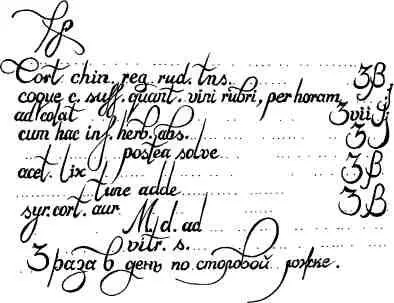 Rp
Cort chin. reg rud. tns. ʒβ
coque c. suff. quant. vini rubri, per horam
ad colat ʒvii
cum hac inf. herb. abs. ʒj
postea solve
acet. lix ʒβ
tunc adde
syr. cort. aur ʒβ
M. d. ad
vitr. s.
3 раза в день по столовой ложке.